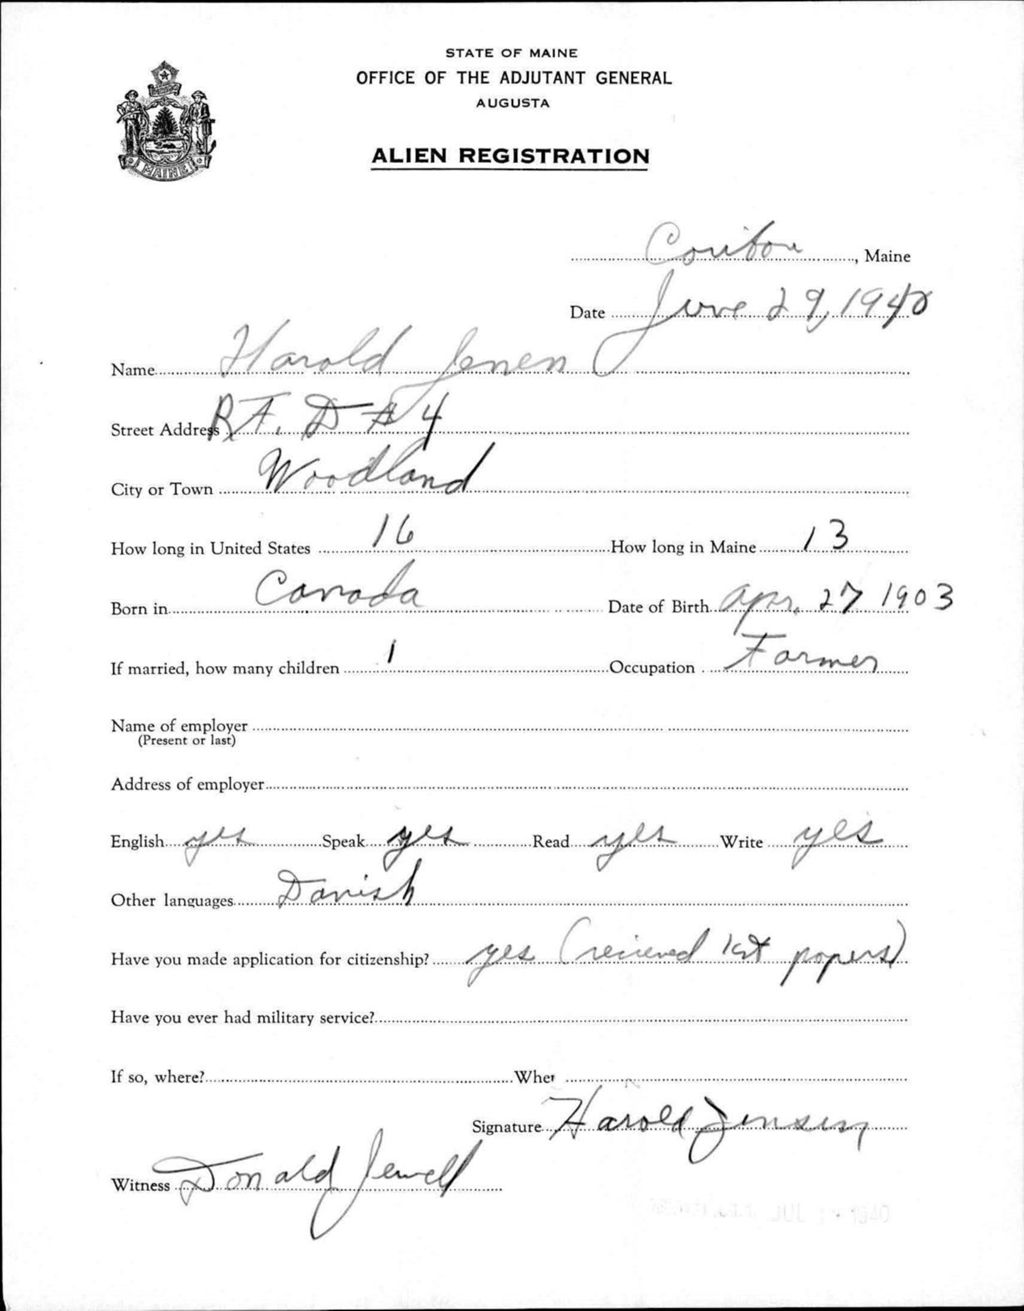 STATE OF MAINE
OFFICE OF THE ADJUTANT GENERAL
AUGUSTA
ALIEN REGISTRATION
MAINE
Caribou, Maine
Date June 29, 1940
Name Harold Jenen
Street Address R.F.D #4
City or Town Woodland
How long in United States 16 How long in Maine 13
Born in Canada Date of Birth Apr. 27 1903
If married, how many children 1 Occupation Farmer
Name of employer
(Present or last)
Address of employer
English yes Speak yes Read yes Write yes
Other languages Danish
Have you made application for citizenship? yes (recieved 1st papers)
Have you ever had military service?
If so, where? When
Signature Harold Jensen
Witness Donald Jewell
JUL 1940